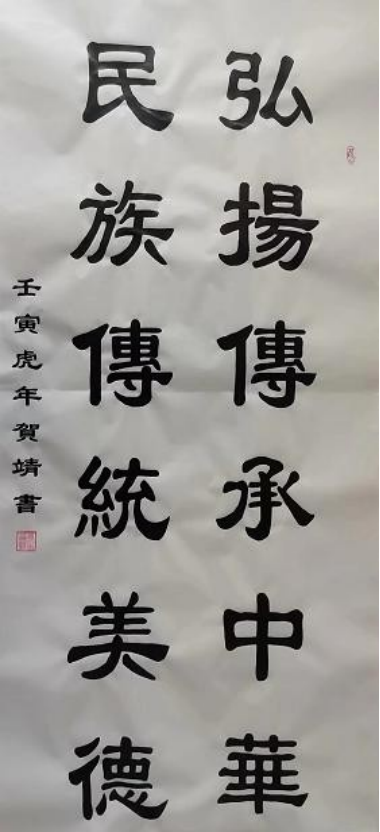 弘揚傳承中華
民族傳統美德
壬寅虎年賀靖書